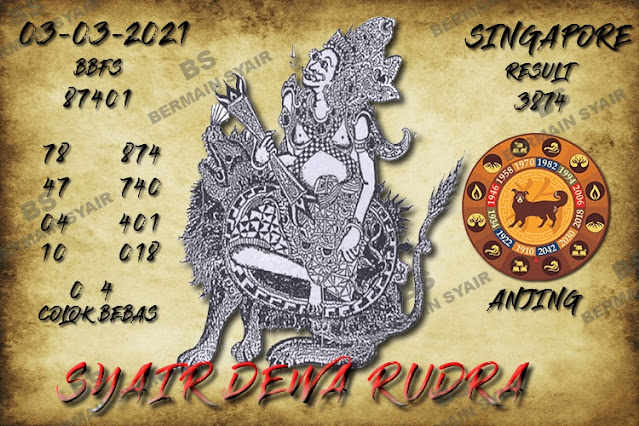 03-03-2021
BBFS
87401
78 874
47 740
04 401
10 018
0 4
COLOK BEBAS
SINGAPORE
RESULT
3874
1970 1982 1994 2006 2018 2030 2042 1910 1922 1934 1946 1958
ANJING
SYAIR DEWA RUDRA
BS
BERMAIN SYAIR
BERMAIN SYAIR
BS
BERMAIN SYAIR
BERMAIN SYAIR